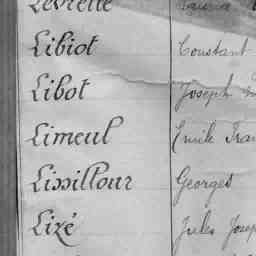 Levrette
Libiot Constant
Libot Joseph
Limeul Emile Fran
Lissillour Georges
Lizé Jules Josep